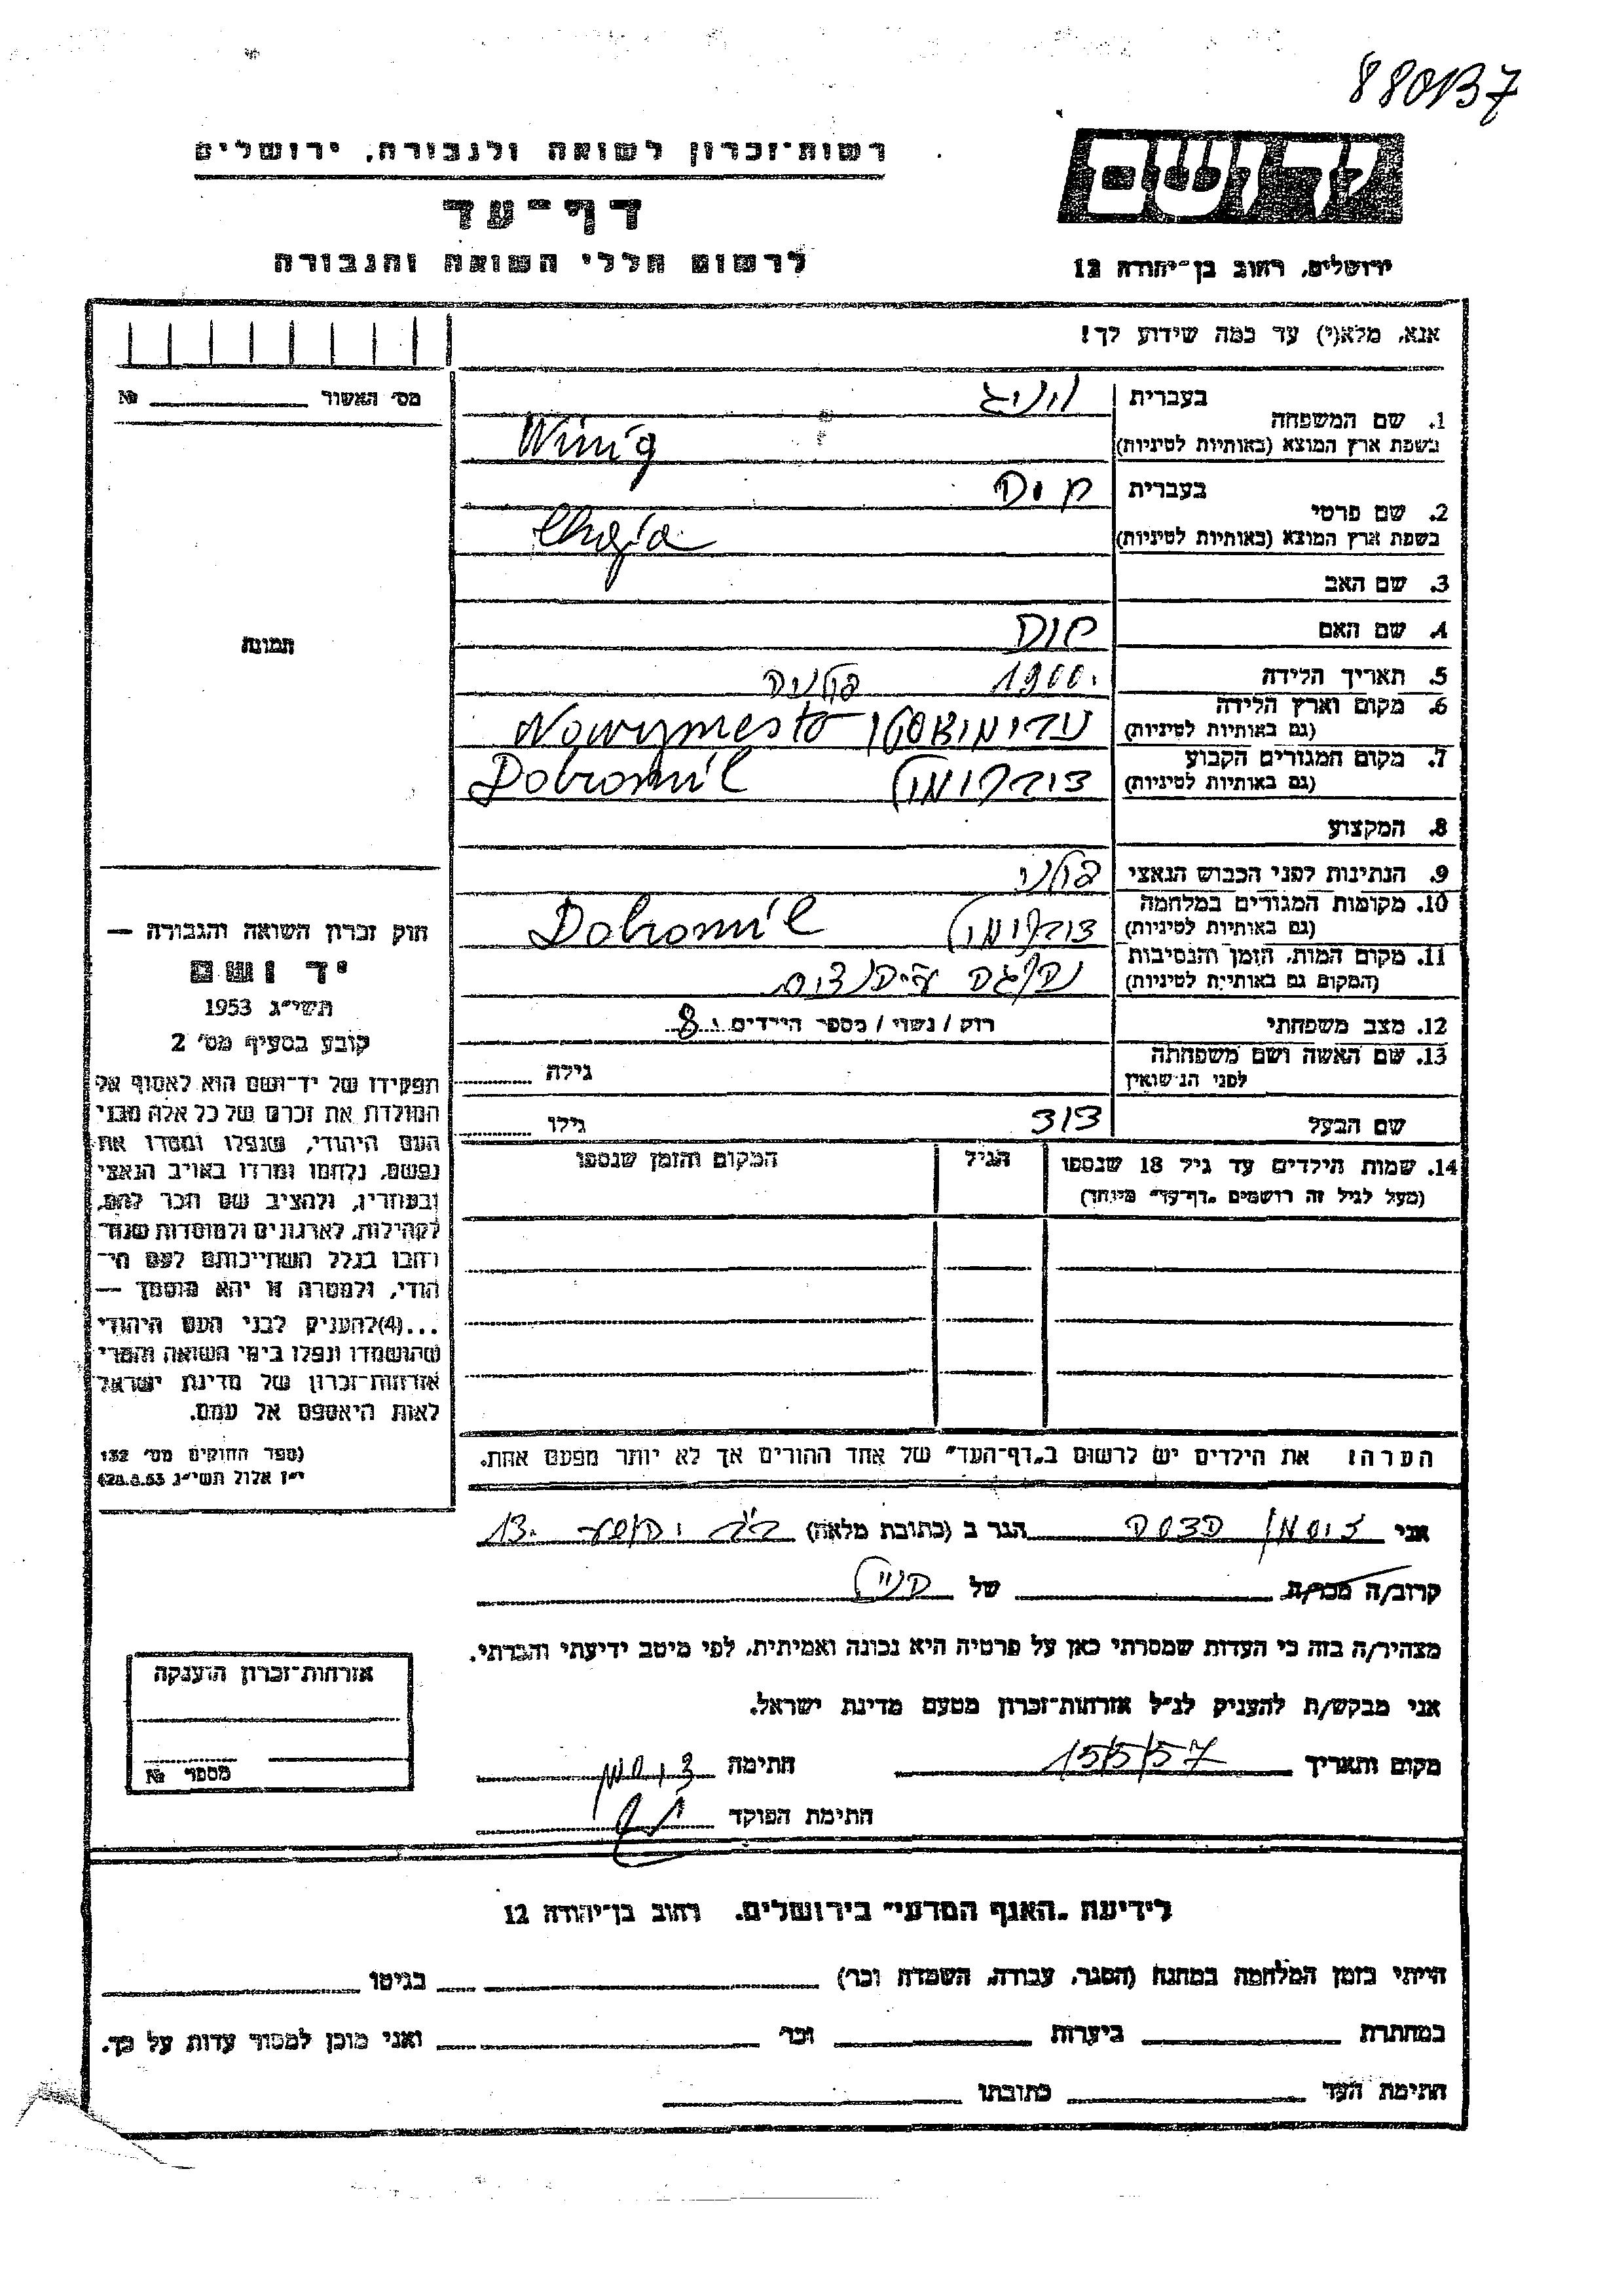 880137
רשות־זכרון לשואה ולגבורה, ירושלים
דף־עד
לרשום חללי השואה והגבורה
יד ושם
ירושלים, רחוב בן־יהודה 12
אנא, מלא(י) עד כמה שידוע לך!
מס׳ האשור № ________
תמונה
1. שם המשפחה
בעברית ויניג
בשפת ארץ המוצא (באותיות לטיניות) Winig
2. שם פרטי
בעברית
בשפת ארץ המוצא (באותיות לטיניות) Chaja
3. שם האב
4. שם האם
5. תאריך הלידה 1900.
6. מקום וארץ הלידה (גם באותיות לטיניות) Nowymesto פולניה
7. מקום המגורים הקבוע (גם באותיות לטיניות) דוברומיל Dobromil
8. המקצוע
9. הנתינות לפני הכבוש הנאצי פולני
10. מקומות המגורים במלחמה (גם באותיות לטיניות) דוברומיל Dobromil
11. מקום המות, הזמן והנסיבות (המקום גם באותיות לטיניות)
12. מצב משפחתי רוק / נשוי / מספר הילדים 8
13. שם האשה ושם משפחתה לפני הנישואין גילה
שם הבעל דוד גילו
14. שמות הילדים עד גיל 18 שנספו (מעל לגיל זה רושמים „דף־עד״ מיוחד) הגיל המקום והזמן שנספו
חוק זכרון השואה והגבורה —
יד ושם
תשי״ג 1953
קובע בסעיף מס׳ 2
תפקידו של יד־ושם הוא לאסוף אל
המולדת את זכרם של כל אלה מבני
העם היהודי, שנפלו ומסרו את
נפשם, נלחמו ומרדו באויב הנאצי
ובעוזריו, ולהציב שם וזכר להם,
לקהילות, לארגונים ולמוסדות שנח־
רבו בגלל השתייכותם לעם הי־
הודי, ולמטרה זו יהא מוסמך —
...(4)להעניק לבני העם היהודי
שהושמדו ונפלו בימי השואה והמרי
אזרחות־זכרון של מדינת ישראל
לאות היאספם אל עמם.
(ספר החוקים מס׳ 132
י״ז אלול תשי״ג 28.8.53)
הערה: את הילדים יש לרשום ב„דף־העד״ של אחד ההורים אך לא יותר מפעם אחת.
אני זוסמן הדסה הגר ב (כתובת מלאה) 13.
קרוב/ה מכר/ה של
מצהיר/ה בזה כי העדות שמסרתי כאן על פרטיה היא נכונה ואמיתית, לפי מיטב ידיעתי והכרתי.
אני מבקש/ת להעניק לנ״ל אזרחות־זכרון מטעם מדינת ישראל.
מקום ותאריך 15/5/57 חתימה
חתימת הפוקד
אזרחות־זכרון הוענקה
מספר №
לידיעת „האגף המדעי״ בירושלים, רחוב בן־יהודה 12
הייתי בזמן המלחמה במחנה (הסגר, עבודה, השמדה וכו׳) בגיטו
במחתרת ביערות וכו׳ ואני מוכן למסור עדות על כך.
חתימת העד כתובתו